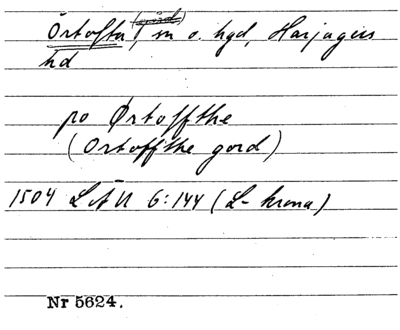 Örtofta, (gård) sn o. hgd, Harjagers
hd
på Ørtoffthe
(Ortoffthe gord)
1504 LÄU 6:144 (L-krona)
Nr 5624.